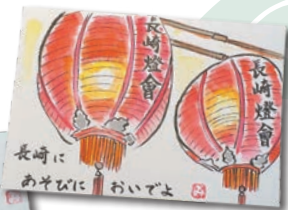 長崎燈會
長崎燈會
長崎に
あそびに おいでよ